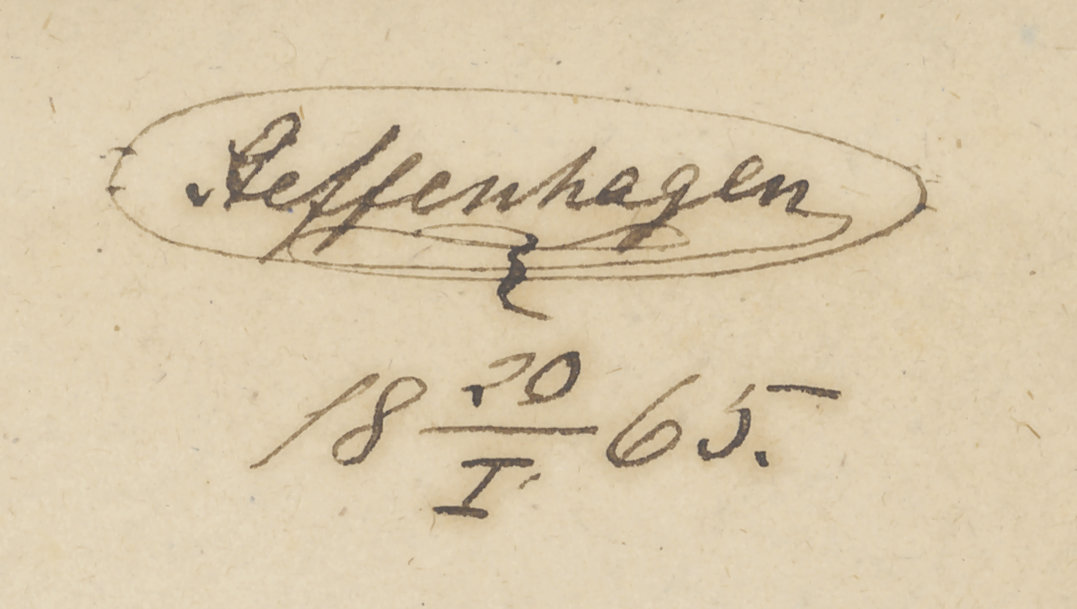 Steffenhagen
18 20/I. 65.